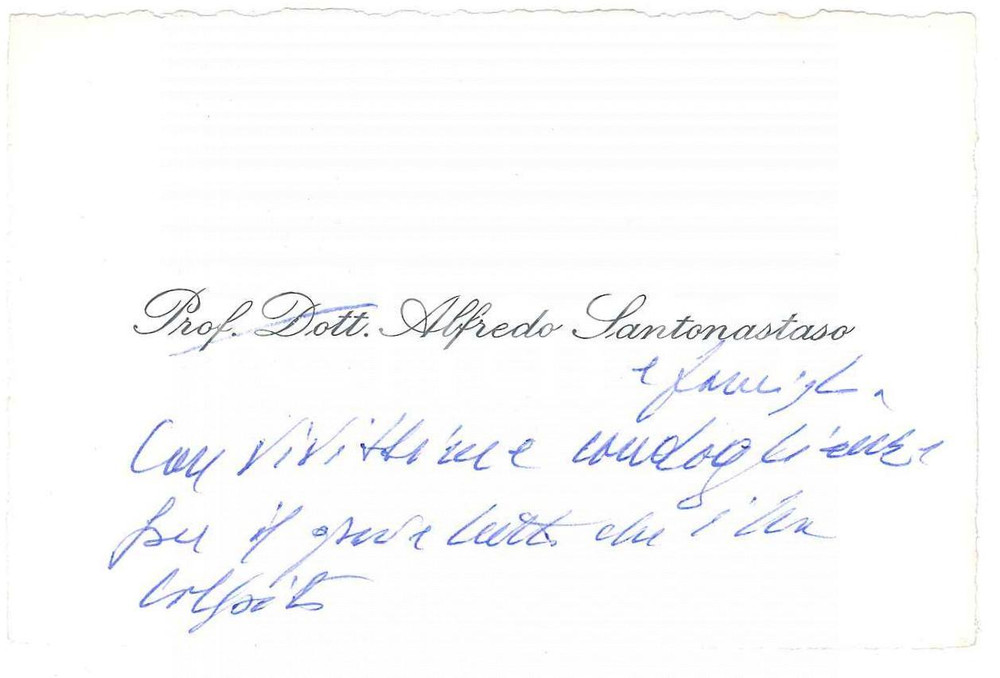 Prof. Dott. Alfredo Santonastaso
e famiglia
Con vivissime condoglianze
per il grave lutto che
colpito